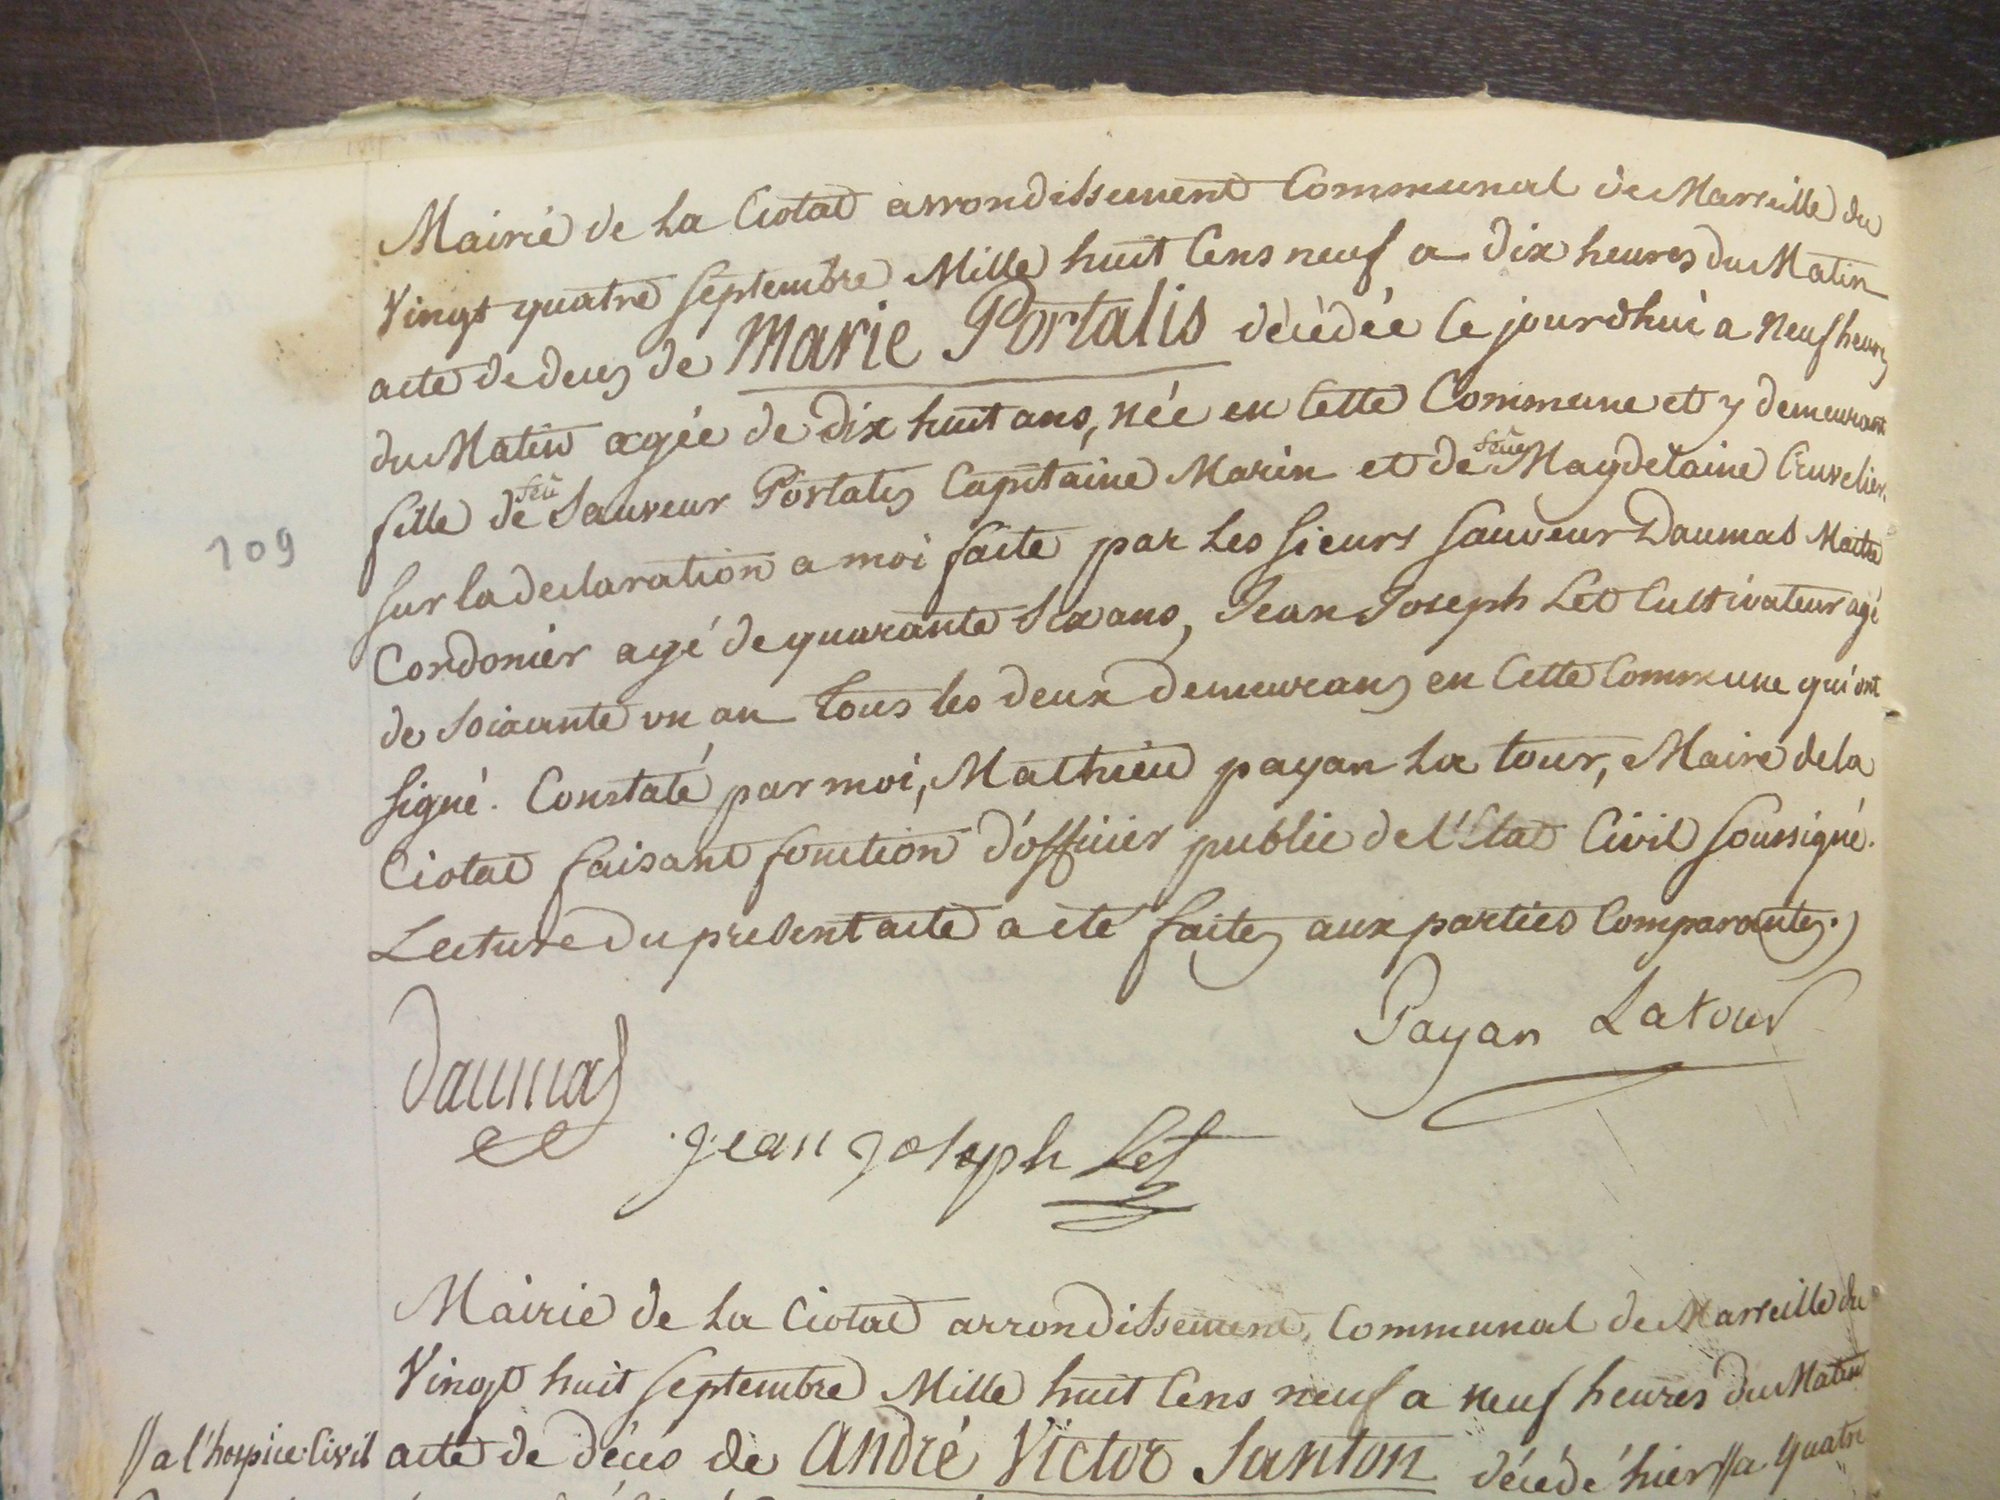 Mairie de La Ciotat arrondissement Communal de Marseille du
Vingt quatre Septembre Mille huit Cens neuf a dix heures du Matin
acte de deces de Marie Portalis décédée Ce jourdhui a Neuf heures
du Matin agée de dix huit ans, née en Cette Commune et y demeurant
fille de feu Sauveur Portalis Capitaine Marin et de feue Magdelaine Cruvelier,
Sur la declaration a moi faite par Les Sieurs Sauveur Daumas Maitre
109
Cordonier agé de quarante Six ans, Jean Joseph Let Cultivateur agé
de Soixante un an tous les deux demeurans en Cette Commune qui ont
Signé. Constaté par moi, Mathieu payan La tour, Maire de la
Ciotat faisant fonction d'officier public de l'Etat Civil Soussigné.
Lecture du present acte a eté faite aux parties Comparantes.
Payan Latour
Daumas
Jean Joseph Let
Mairie de La Ciotat arrondissement Communal de Marseille du
Vingt huit Septembre Mille huit Cens neuf a neuf heures du Matin
// a l'hospice Civil acte de déces de André Victor Santon décédé hier // a quatre